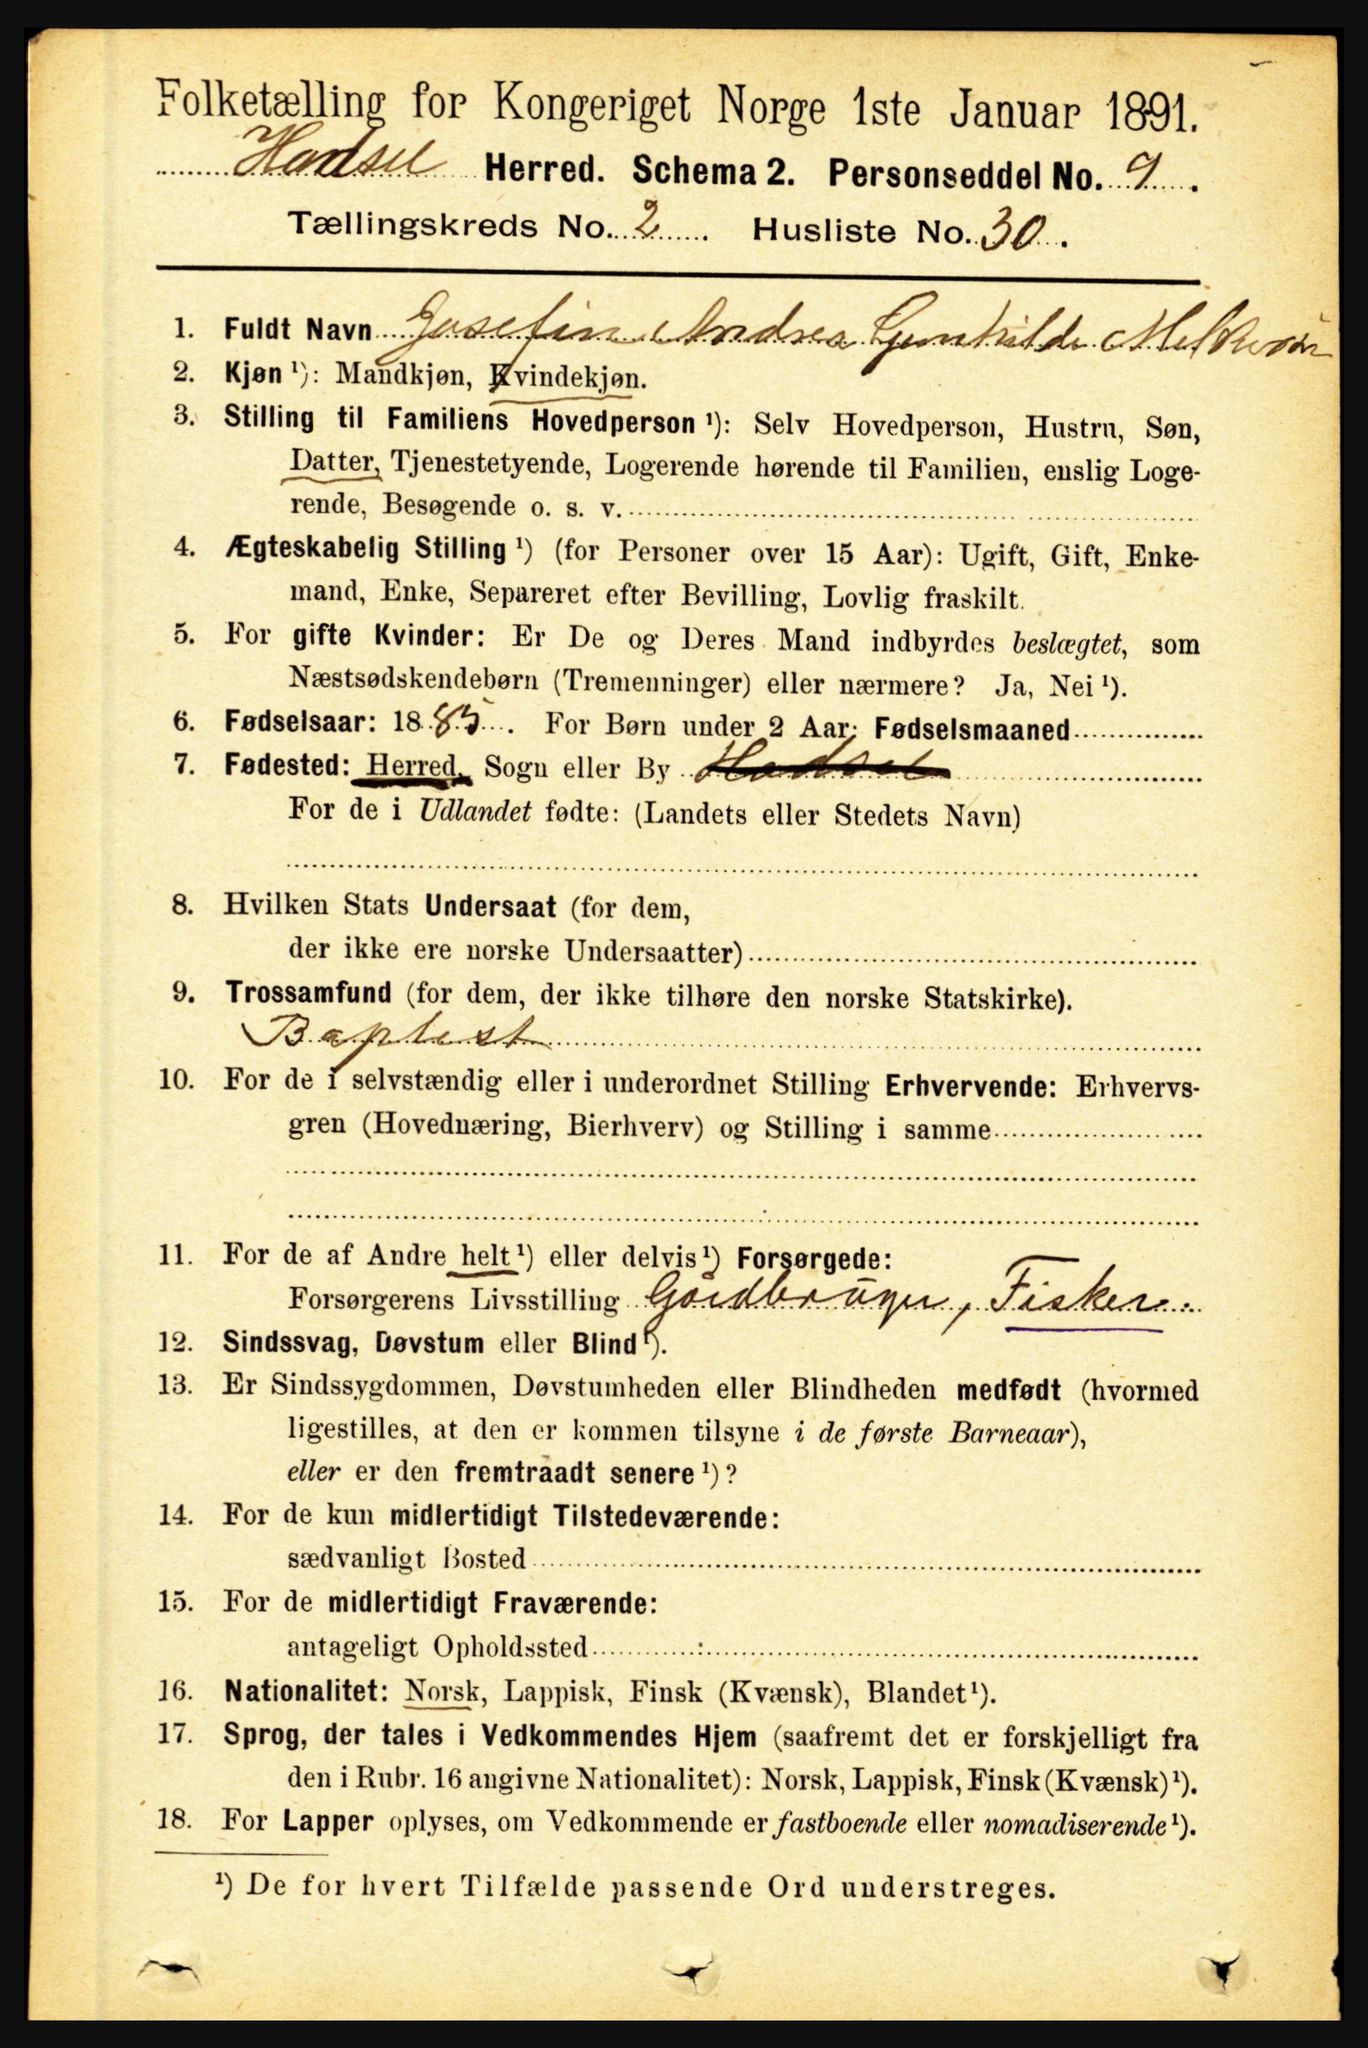 Folketælling for Kongeriget Norge 1ste Januar 1891.
Hadsel Herred. Schema 2. Personseddel No. 9.
Tællingskreds No. 2. Husliste No. 30.
1. Fuldt Navn Josefin Andrea
2. Kjøn ¹): Mandkjøn, Kvindekjøn.
3. Stilling til Familiens Hovedperson ¹): Selv Hovedperson, Hustru, Søn,
Datter, Tjenestetyende, Logerende hørende til Familien, enslig Loge-
rende, Besøgende o. s. v.
4. Ægteskabelig Stilling ¹) (for Personer over 15 Aar): Ugift, Gift, Enke-
mand, Enke, Separeret efter Bevilling, Lovlig fraskilt.
5. For gifte Kvinder: Er De og Deres Mand indbyrdes beslægtet, som
Næstsødskendebørn (Tremenninger) eller nærmere? Ja, Nei ¹).
6. Fødselsaar: 1885. For Børn under 2 Aar: Fødselsmaaned
7. Fødested: Herred, Sogn eller By Hadsel
For de i Udlandet fødte: (Landets eller Stedets Navn)
8. Hvilken Stats Undersaat (for dem,
der ikke ere norske Undersaatter)
9. Trossamfund (for dem, der ikke tilhøre den norske Statskirke).
Baptest
10. For de i selvstændig eller i underordnet Stilling Erhvervende: Erhvervs-
gren (Hovednæring, Bierhverv) og Stilling i samme
11. For de af Andre helt ¹) eller delvis ¹) Forsørgede:
Forsørgerens Livsstilling Gårdbruger, Fisker.
12. Sindssvag, Døvstum eller Blind ¹).
13. Er Sindssygdommen, Døvstumheden eller Blindheden medfødt (hvormed
ligestilles, at den er kommen tilsyne i de første Barneaar),
eller er den fremtraadt senere ¹)?
14. For de kun midlertidigt Tilstedeværende:
sædvanligt Bosted
15. For de midlertidigt Fraværende:
antageligt Opholdssted
16. Nationalitet: Norsk, Lappisk, Finsk (Kvænsk), Blandet ¹).
17. Sprog, der tales i Vedkommendes Hjem (saafremt det er forskjelligt fra
den i Rubr. 16 angivne Nationalitet): Norsk, Lappisk, Finsk (Kvænsk) ¹).
18. For Lapper oplyses, om Vedkommende er fastboende eller nomadiserende ¹).
¹) De for hvert Tilfælde passende Ord understreges.